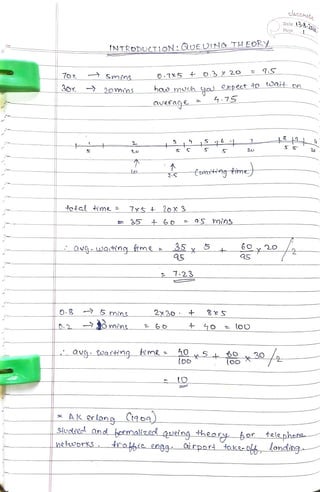 classmate
Date 13.8.
Page 1
INTRODUCTION: QUEUING THEORY
70% → 5mins 0.7x5 + 0.3 x 20 = 9.5
30% → 20mins how much you expect to wait on
average = 4.75
1 2 3 4 5 6 7 8 9
5 20 5 5 5 5 20 5 5
↑ ↑
10 2.5 (waiting time)
total time = 7x5 + 20x3
= 35 + 60 = 95 mins
∴ avg. waiting time = 35/95 x 5 + 60/95 x 20 / 2
= 7.23
0.8 → 5 mins 2x30 + 8x5
0.2 → mins = 60 + 40 = 100
∴ avg. waiting time = 40/100 x 5 + 60/100 x 30 / 2
= 10
* AK erlang (1909)
studied and formalized quting theory for telephone
networks. traffic engg. airport take-off, landing.